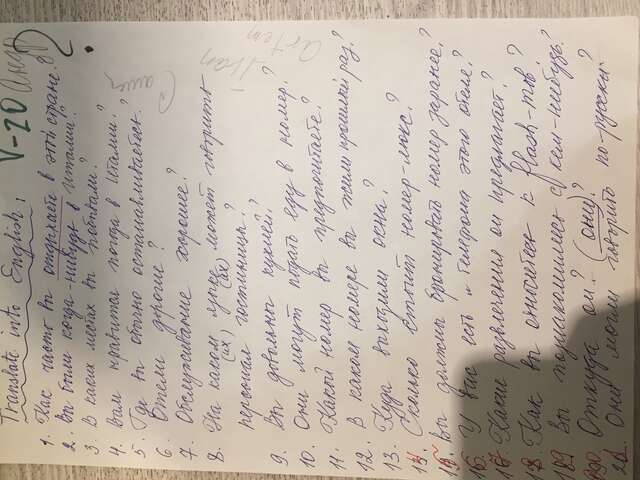 Translate into English: V-20
1. Как часто вы отдыхаете в этой стране?
2. Вы были когда-нибудь в Италии?
3. В каких местах вы побывали?
4. Вам нравится погода в Италии?
5. Где вы обычно останавливаетесь?
6. Отели дорогие?
7. Обслуживание хорошее?
8. На каком языке может говорить
(их) (их)
персонал гостиницы?
9. Вы довольны кухней?
10. Они могут подать еду в номер?
11. Какой номер вы предпочитаете?
12. В каком номере вы жили прошлый раз?
13. Куда выходили окна?
14. Сколько стоит номер-люкс?
15. Вы должны бронировать номер заранее?
16. У вас есть № телефона этого отеля?
17. Какие развлечения он предлагает?
18. Как вы относитесь к flash-mob?
19. Вы познакомились с кем-нибудь?
20. Откуда он? (они)?
21. Они могли говорить по-русски?
Саша
Artem